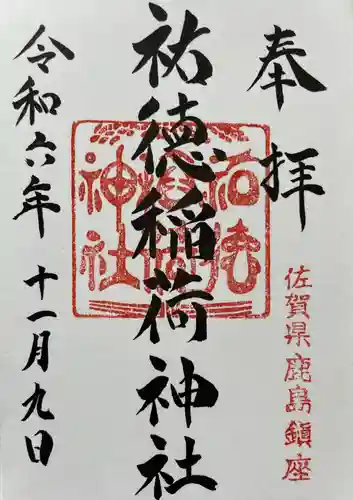 奉拝
佐賀県鹿島鎮座
祐徳稲荷神社
令和六年 十一月九日